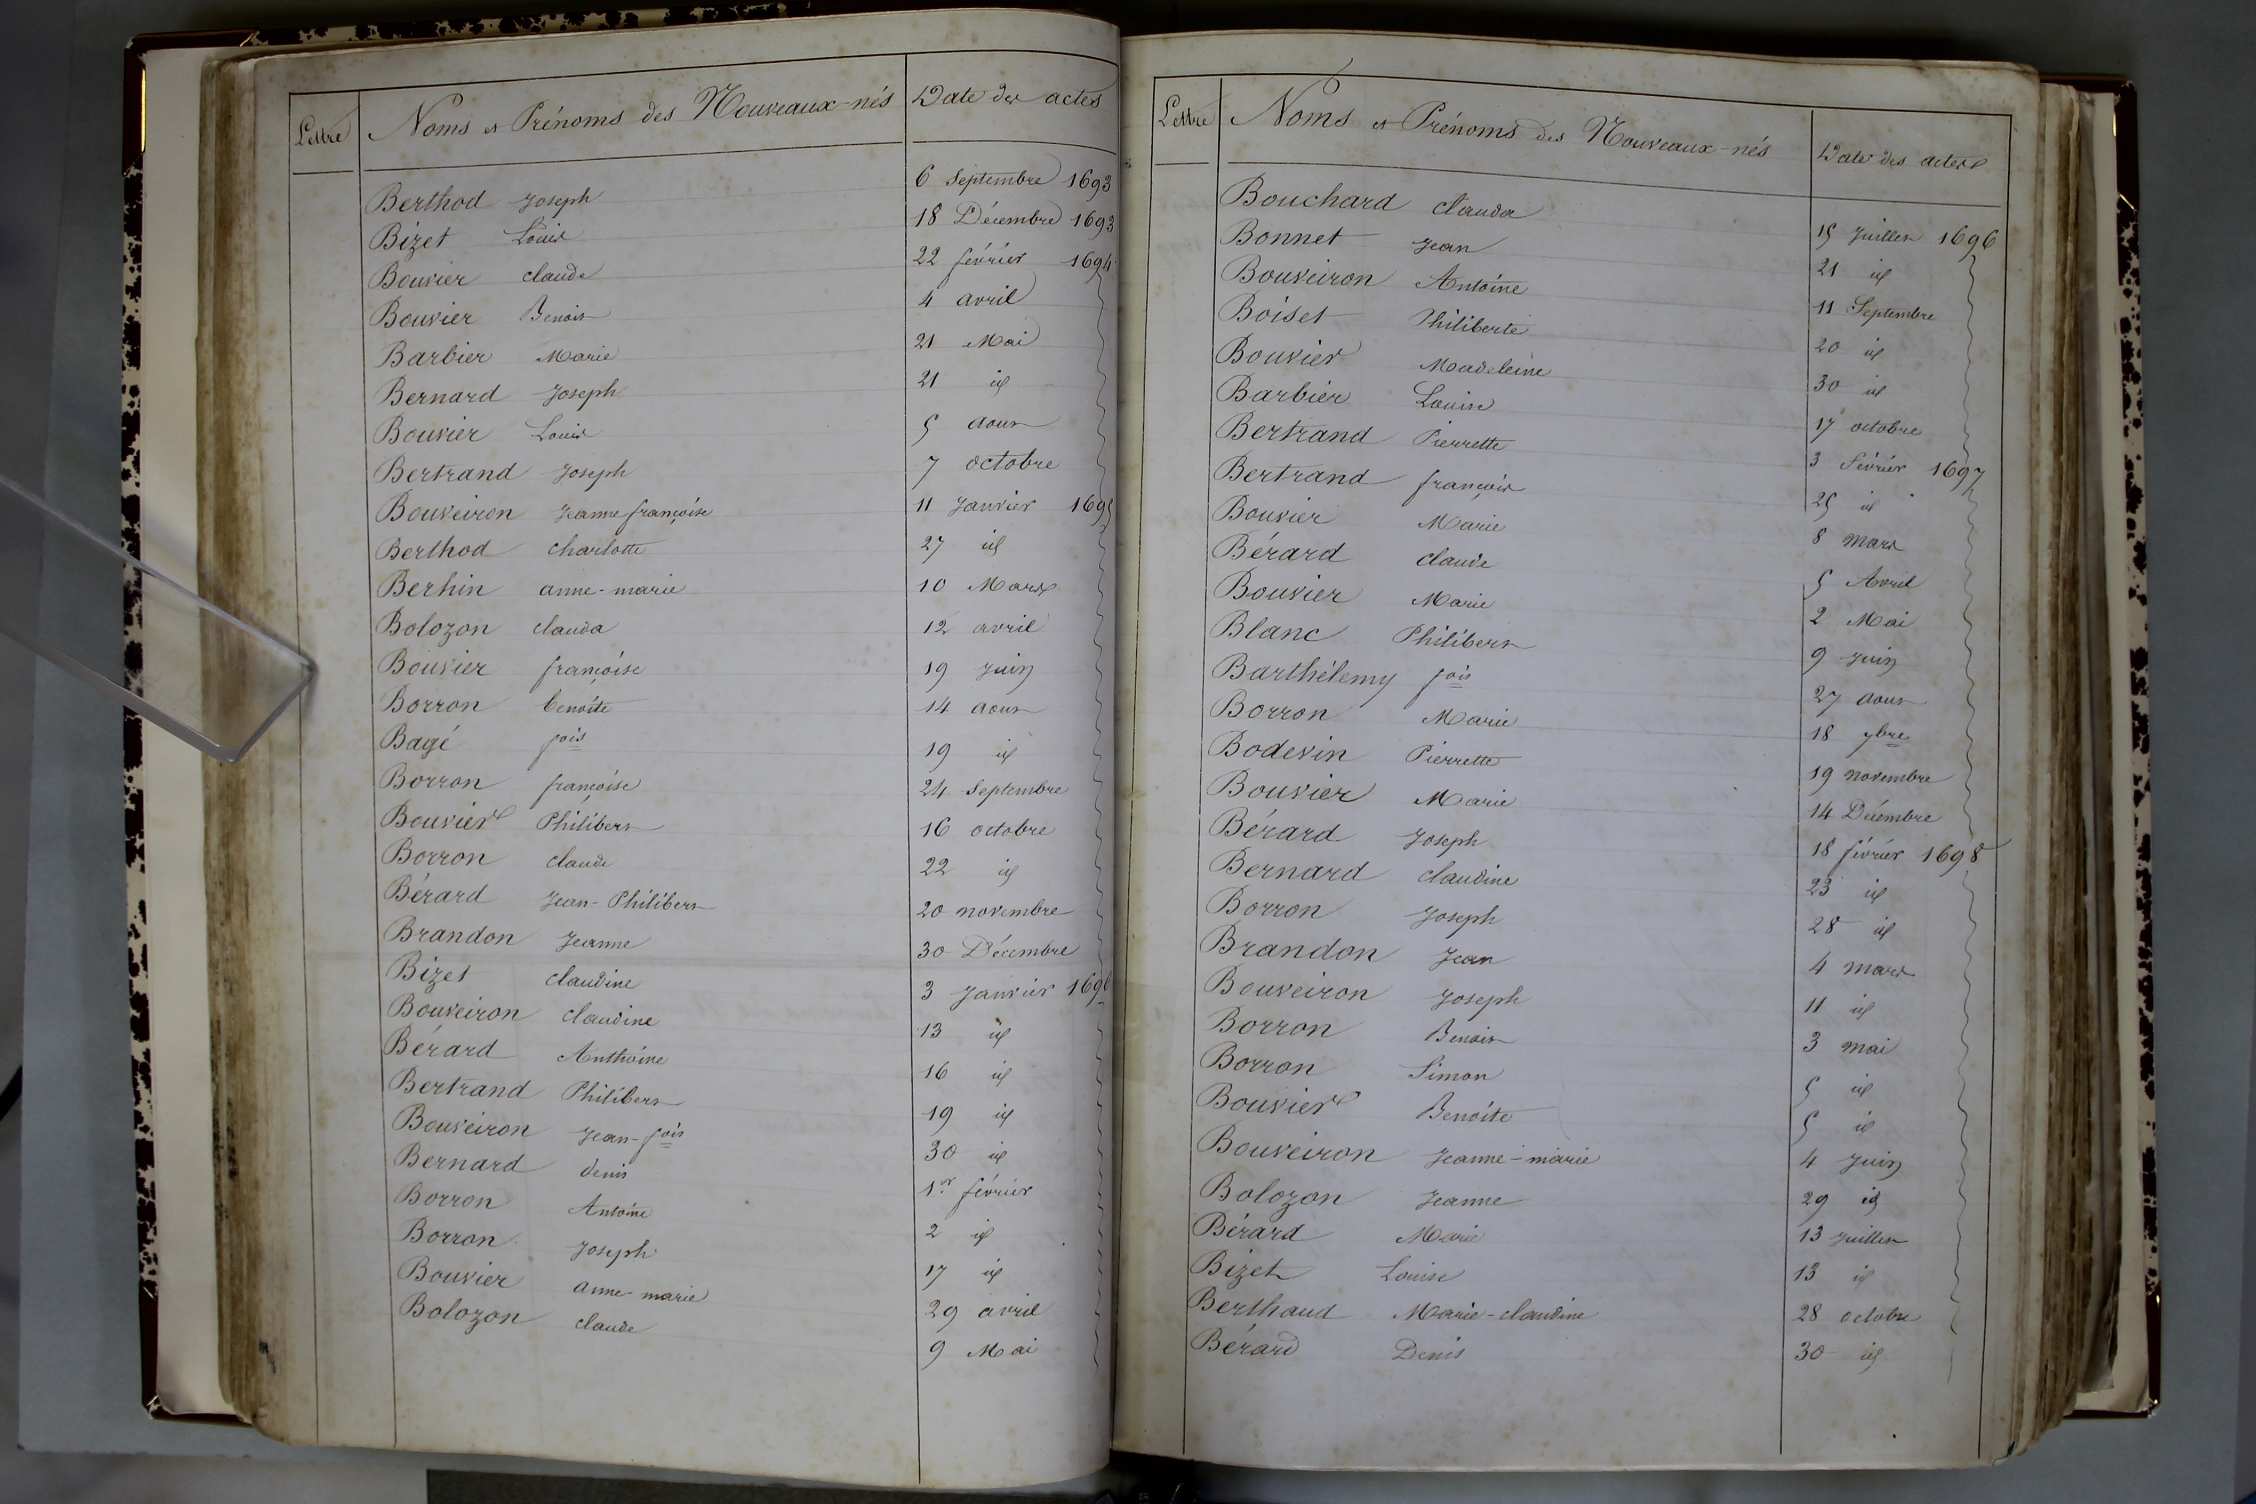 Lettre Noms et Prénoms des Nouveaux-nés Date des actes
Berthod Joseph 6 Septembre 1693
Bizet Louis 18 Décembre 1693
Bouvier claude 22 février 1694
Bouvier Benoit 4 avril
Barbier Marie 21 Mai
Bernard Joseph 21 id
Bouvier Louis 5 aout
Bertrand Joseph 7 octobre
Bouveiron Jeanne françoise 11 Janvier 1695
Berthod charlotte 27 id
Berhin anne-marie 10 Mars
Bolozon clauda 12 avril
Bouvier françoise 19 Juin
Borron benoite 14 aout
Bagé fois 19 id
Borron françoise 24 Septembre
Bouvier Philibert 16 octobre
Borron claude 22 id
Bérard Jean-Philibert 20 novembre
Brandon Jeanne 30 Décembre
Bizet claudine 3 Janvier 1696
Bouveiron claudine 13 id
Bérard Anthoine 16 id
Bertrand Philibert 19 id
Bouveiron Jean-fois 30 id
Bernard denis 1er février
Borron Antoine 2 id
Borron Joseph 17 id
Bouvier anne-marie 29 avril
Bolozon claude 9 Mai
Lettre Noms et Prénoms des Nouveaux-nés Date des actes
Bouchard clauda 15 Juillet 1696
Bonnet Jean 21 id
Bouveiron Antoine 11 Septembre
Boiset Philiberte 20 id
Bouvier Madeleine 30 id
Barbier Louise 17 octobre
Bertrand Pierrette 3 Février 1697
Bertrand françois 25 id
Bouvier Marie 8 mars
Bérard claude 5 Avril
Bouvier Marie 2 Mai
Blanc Philibert 9 Juin
Barthélemy fois 27 aout
Borron Marie 18 9bre
Bodevin Pierrette 19 novembre
Bouvier Marie 14 Décembre
Bérard Joseph 18 février 1698
Bernard claudine 23 id
Borron Joseph 28 id
Brandon Jean 4 mars
Bouveiron Joseph 11 id
Borron Benoit 3 mai
Borron Simon 5 id
Bouvier Benoite 5 id
Bouveiron Jeanne-marie 4 Juin
Bolozon Jeanne 29 id
Bérard Marie 13 Juillet
Bizet Louise 13 id
Berthaud Marie-claudine 28 octobre
Bérard Denis 30 id